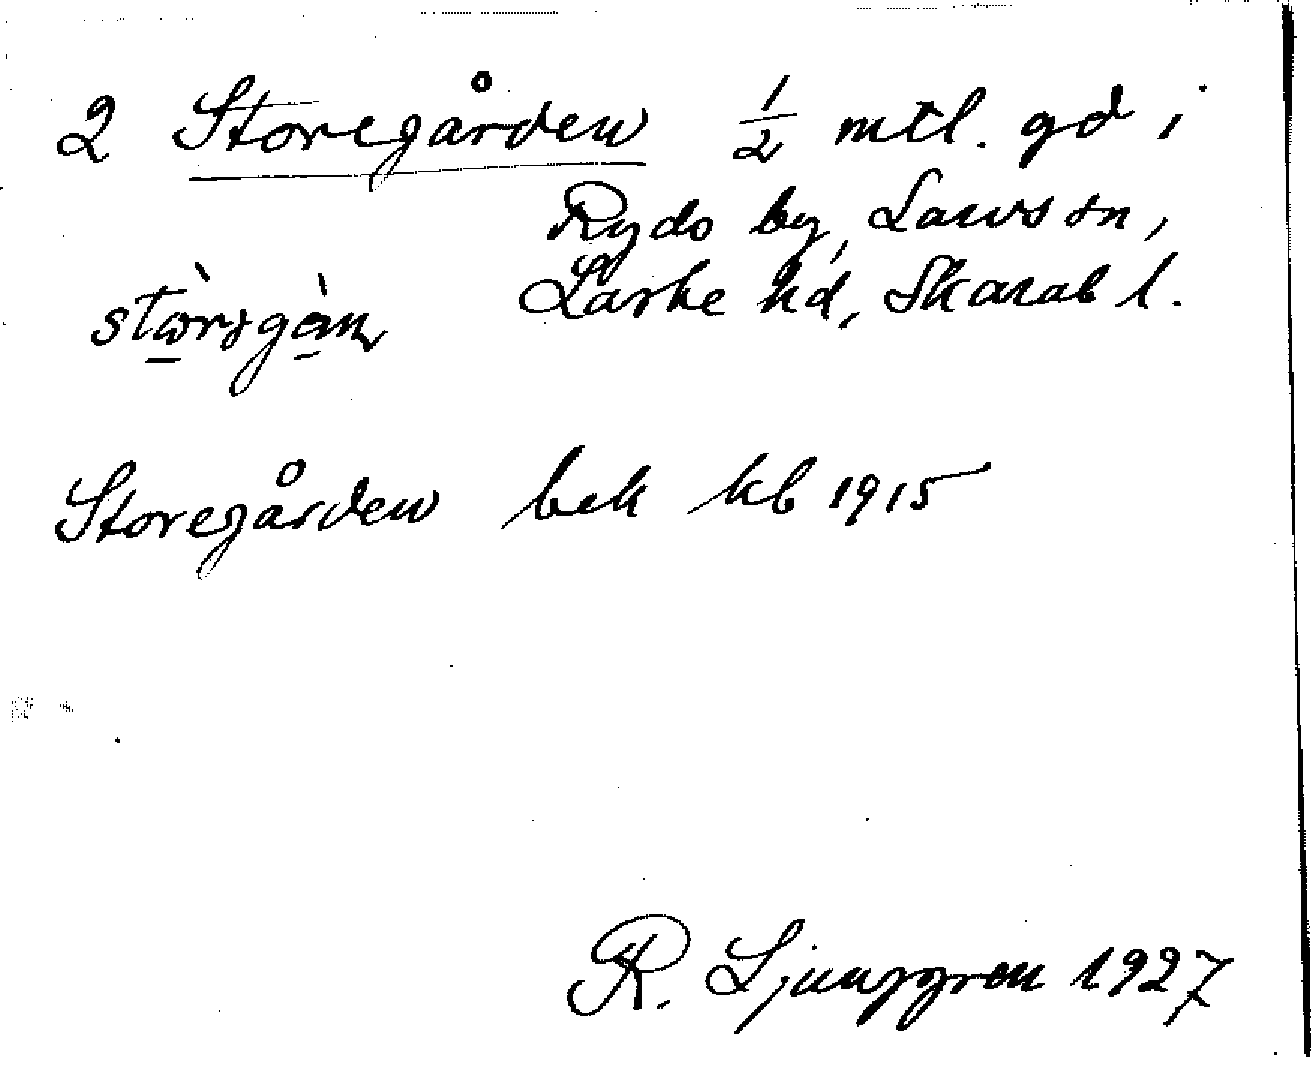 2 Storegården 1/2 mtl. gd i
Rydo by, Larvs sn,
Laske hd, Skarab l.
Storegården bek kb 1915
R. Ljunggren 1927